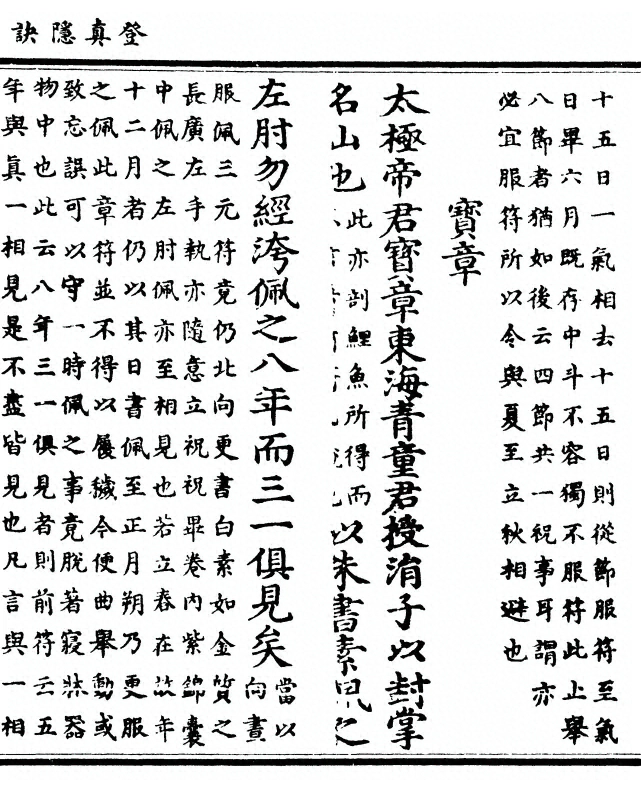 登真隱訣
十五日一氣相去十五日則從節服符至氣
日畢六月既存中斗不容獨不服符此止舉
八節者猶如後云四節共一祝事耳謂亦
必宜服符所以令與夏至立秋相避也
寶章
太極帝君寶章東海青童君授涓子以封掌
名山也此亦剖鯉魚所得而以朱書素佩之
左肘勿經洿佩之八年而三一俱見矣當以
向晝
服佩三元符竟仍北向更書白素如金質之
長廣左手執亦隨意立祝祝畢卷內紫錦囊
中佩之左肘佩亦至相見也若立春在故年
十二月者仍以其日書佩至正月朔乃更服
之佩此章符並不得以履穢今便曲舉動或
致忘誤可以守一時佩之事竟脫著寢牀器
物中也此云八年三一俱見者則前符云五
年與真一相見是不盡皆見也凡言與一相